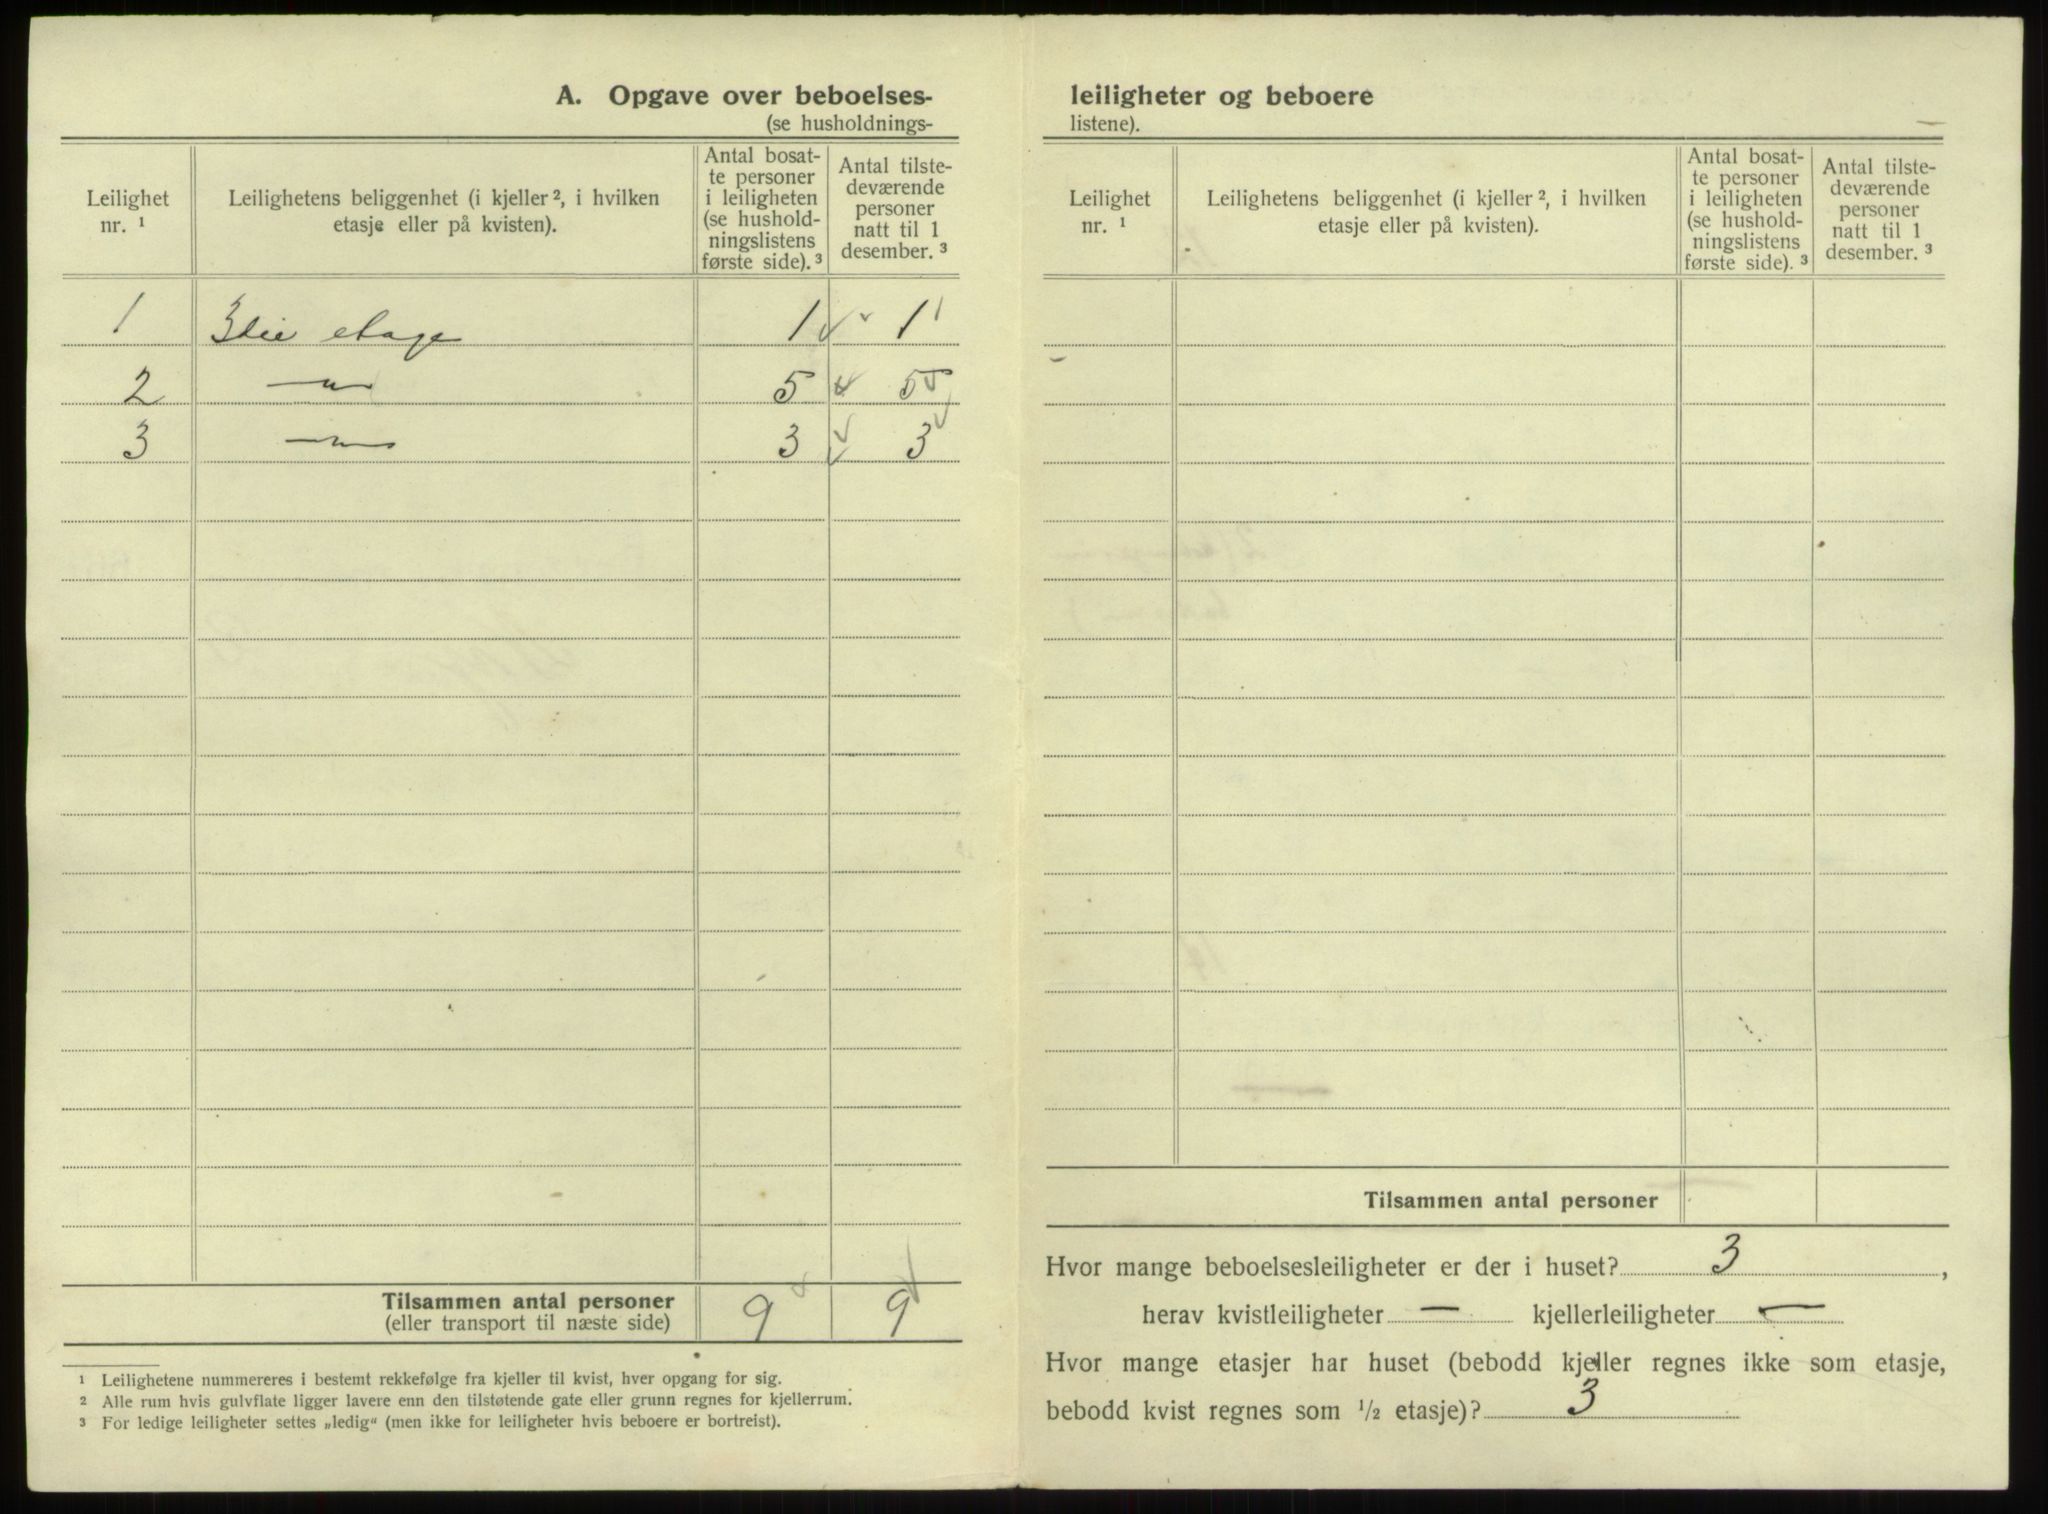 A. Opgave over beboelses-
(se husholdnings-
Leilighet nr. ¹
Leilighetens beliggenhet (i kjeller ², i hvilken etasje eller på kvisten).
Antal bosatte personer i leiligheten (se husholdningslistens første side). ³
Antal tilstedeværende personer natt til 1 desember. ³
1 3die etage 1 1
2 —"— 5 5
3 —"— 3 3
Tilsammen antal personer 9 9
(eller transport til næste side)
¹ Leilighetene nummereres i bestemt rekkefølge fra kjeller til kvist, hver opgang for sig.
² Alle rum hvis gulvflate ligger lavere enn den tilstøtende gate eller grunn regnes for kjellerrum.
³ For ledige leiligheter settes „ledig" (men ikke for leiligheter hvis beboere er bortreist).
leiligheter og beboere
listene).
Leilighet nr. ¹
Leilighetens beliggenhet (i kjeller ², i hvilken etasje eller på kvisten).
Antal bosatte personer i leiligheten (se husholdningslistens første side). ³
Antal tilstedeværende personer natt til 1 desember. ³
Tilsammen antal personer
Hvor mange beboelsesleiligheter er der i huset? 3 ,
herav kvistleiligheter — kjellerleiligheter —
Hvor mange etasjer har huset (bebodd kjeller regnes ikke som etasje,
bebodd kvist regnes som ½ etasje)? 3